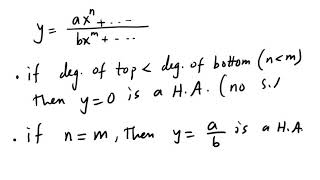 y = ax^n + --- / bx^m + ---
. if deg. of top < deg. of bottom (n<m)
then y = 0 is a H.A. (no s.
. if n = m, then y = a/b is a H.A